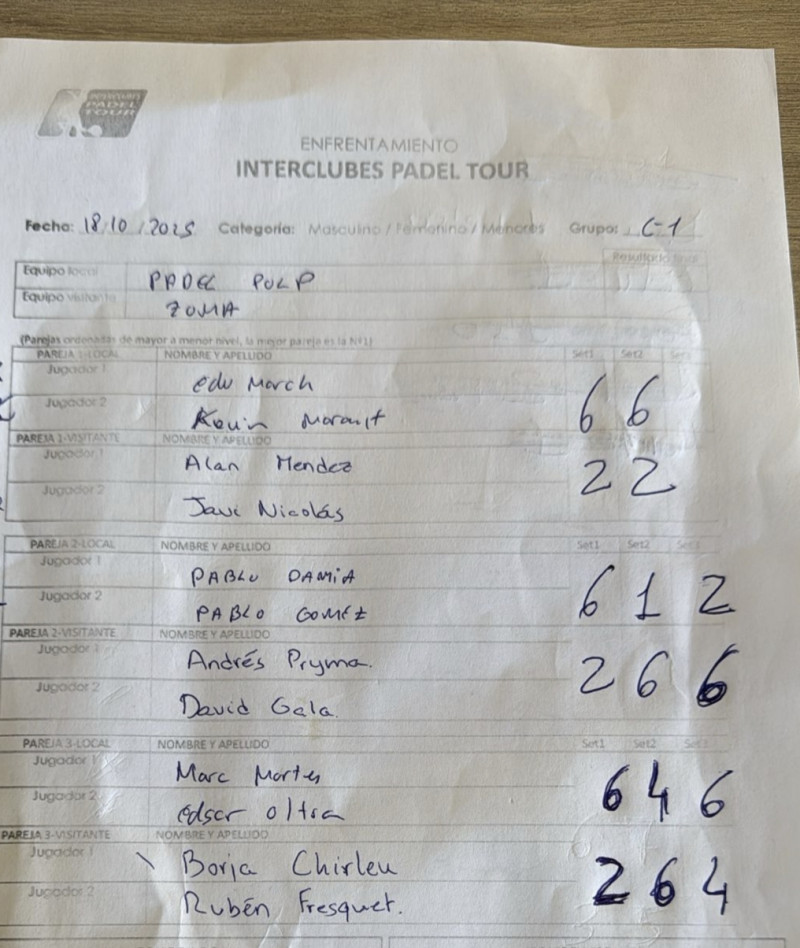 INTERCLUBES
PADEL
TOUR
ENFRENTAMIENTO
INTERCLUBES PADEL TOUR
Fecha: 18/10/2025 Categoría: Masculino / Femenino / Menores Grupo: C-1
Resultado final
Equipo local PADEL POLP
Equipo visitante ZOMA
(Parejas ordenadas de mayor a menor nivel, la mejor pareja es la Nº1)
PAREJA 1-LOCAL NOMBRE Y APELLIDO Set1 Set2 Set3
Jugador 1 edu March
Jugador 2 Kevin Morault 6 6
PAREJA 1-VISITANTE NOMBRE Y APELLIDO
Jugador 1 Alan Mendez 2 2
Jugador 2 Javi Nicolás
PAREJA 2-LOCAL NOMBRE Y APELLIDO Set1 Set2 Set3
Jugador 1 PABLO DAMIA
Jugador 2 PABLO GOMEZ 6 1 2
PAREJA 2-VISITANTE NOMBRE Y APELLIDO
Jugador 1 Andrés Pryma. 2 6 6
Jugador 2 David Gala.
PAREJA 3-LOCAL NOMBRE Y APELLIDO Set1 Set2 Set3
Jugador 1 Marc Martes
Jugador 2 edgar oltra 6 4 6
PAREJA 3-VISITANTE NOMBRE Y APELLIDO
Jugador 1 Borja Chirleu 2 6 4
Jugador 2 Rubén Fresquet.